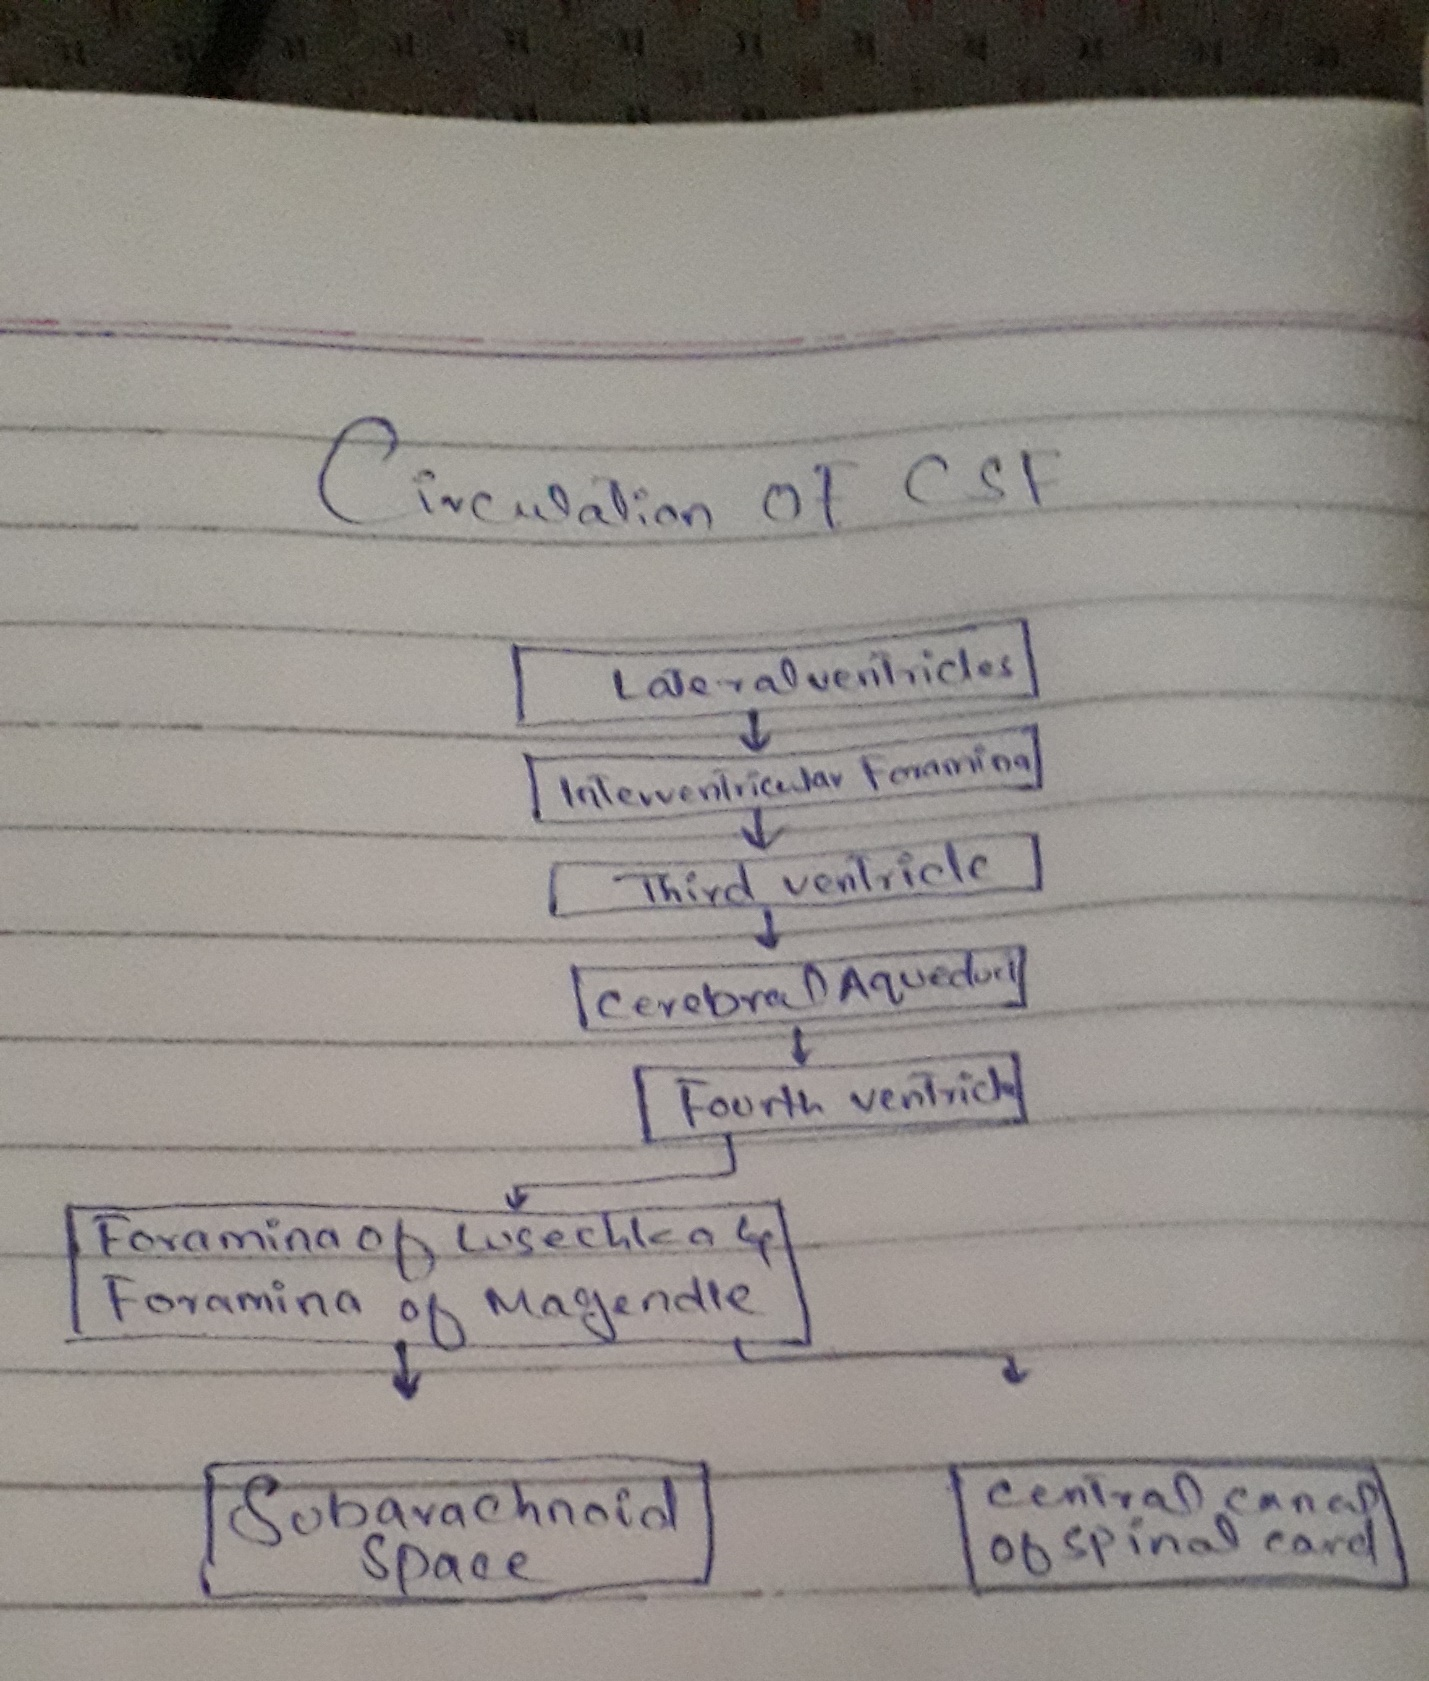 Circulation of CSF
Lateral ventricles
Interventricular Foramina
Third ventricle
Cerebral Aqueduct
Fourth ventricle
Foramina of Lusechka &
Foramina of Magendie
Subarachnoid
Space
central canal
of spinal card